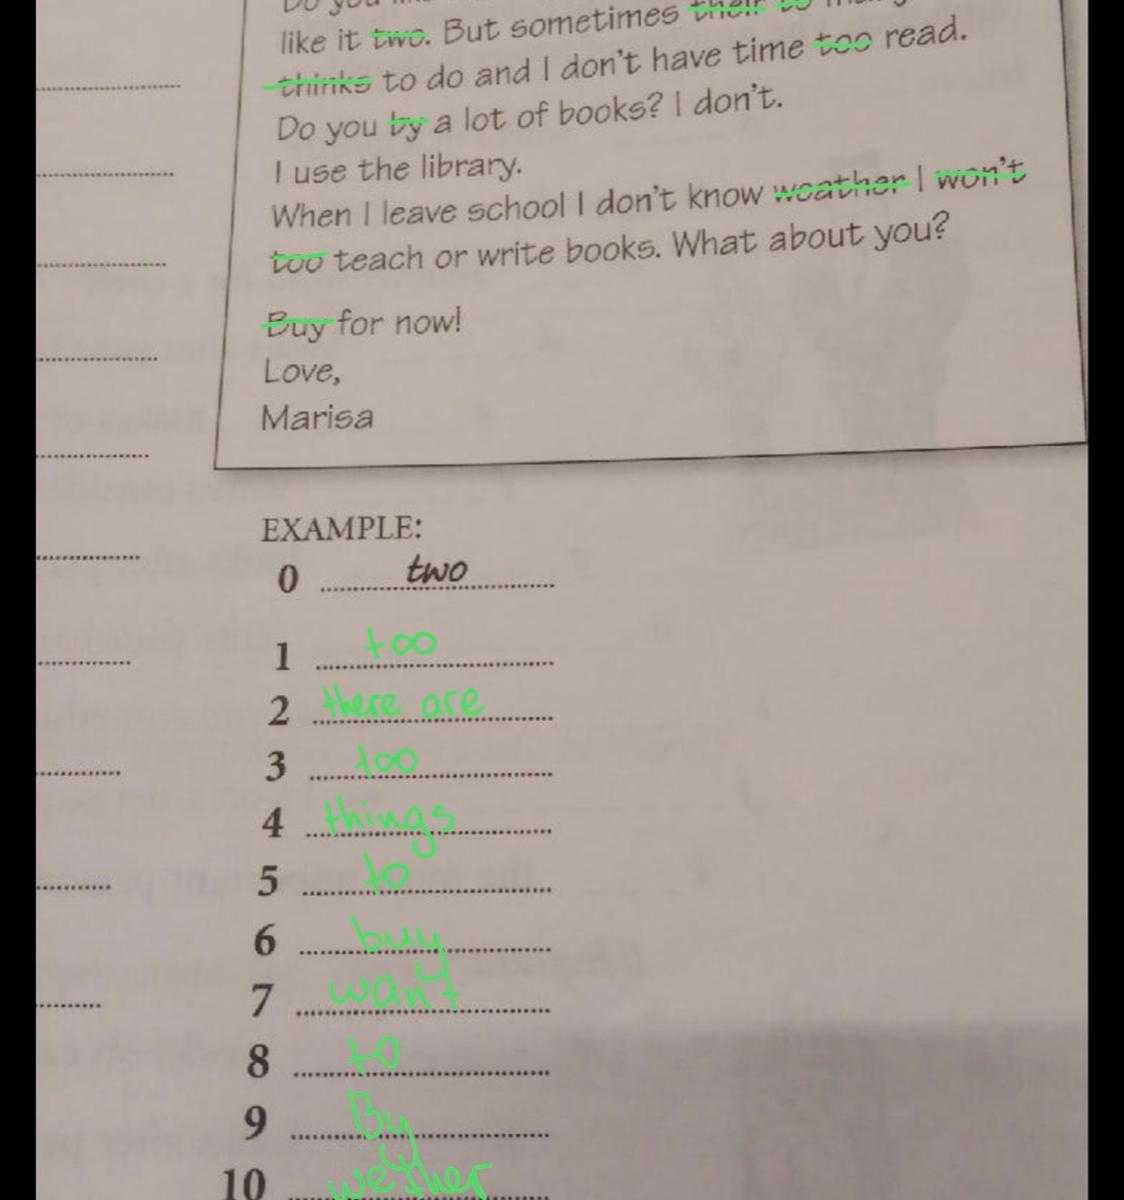 Do you
like it two. But sometimes their to
thinks to do and I don't have time too read.
Do you by a lot of books? I don't.
I use the library.
When I leave school I don't know weather I won't
too teach or write books. What about you?
Buy for now!
Love,
Marisa
EXAMPLE:
0 two
1 too
2 there are
3 too
4 things
5 to
6 buy
7 want
8 to
9 By
10 wether